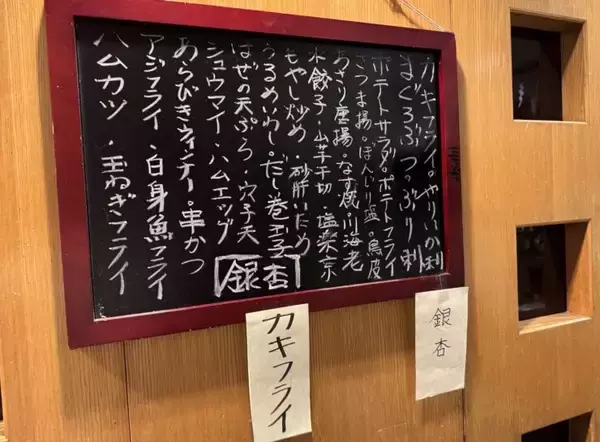 カキフライ。やりいか刺
まぐろぶつ。ぶり刺
ポテトサラダ。ポテトフライ
さつま揚。ぼんじり塩。鳥皮
あさり唐揚。なす焼。川海老
水餃子。山芋千切。塩楽京
もやし炒め。砂肝いため
うるめいわし。だし巻玉子
はぜの天ぷら。穴子天
シュウマイ。ハムエッグ
銀杏
あらびきウィンナー。串かつ
アジフライ。白身魚フライ
ハムカツ。玉ねぎフライ
銀杏
カキフライ